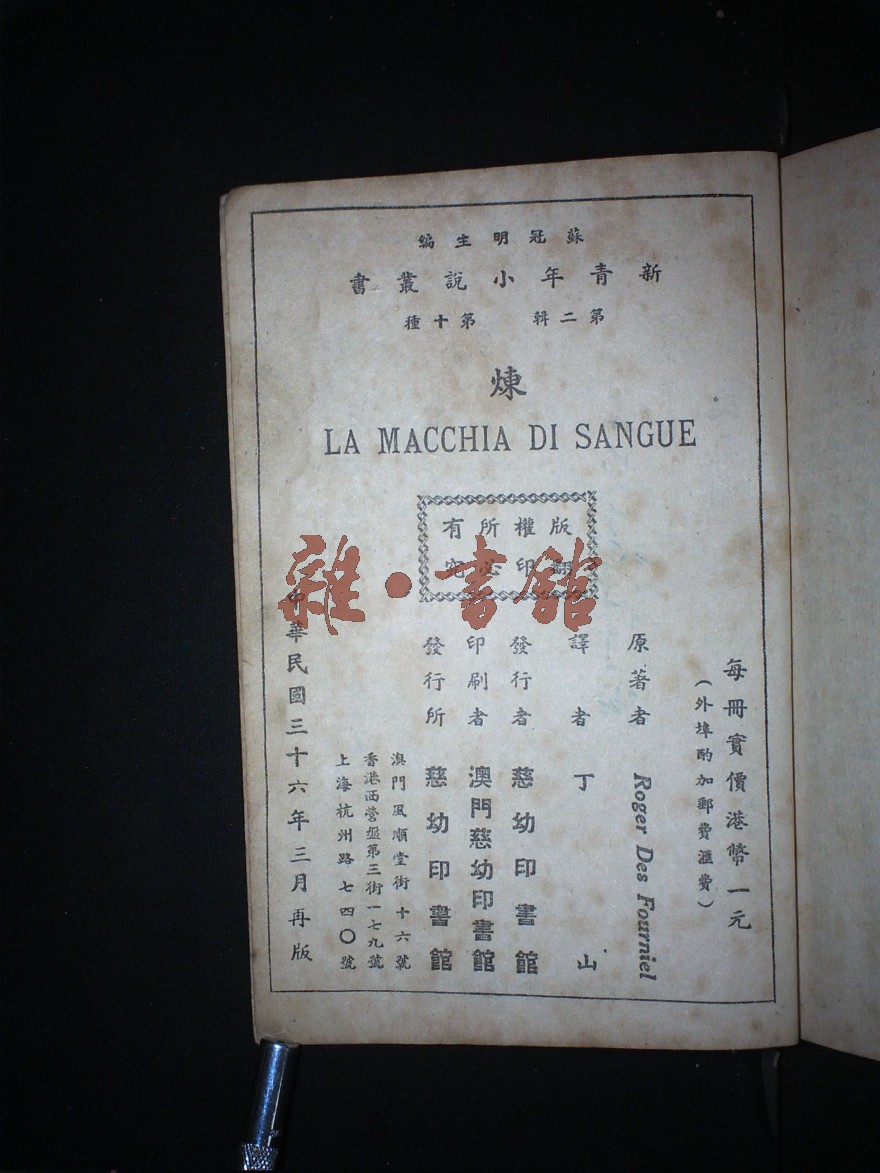 蘇冠明主編
新青年小說叢書
第二輯 第十種
煉
LA MACCHIA DI SANGUE
版權所有
翻印必究
每冊實價港幣一元
（外埠酌加郵費滙費）
原著者 Roger Des Fourniel
譯者 丁山
發行者 慈幼印書館
印刷者 澳門慈幼印書館
發行所 慈幼印書館
澳門風順堂街十六號
香港西營盤第三街一七九號
上海杭州路七四〇號
中華民國三十六年三月再版
雜·書館